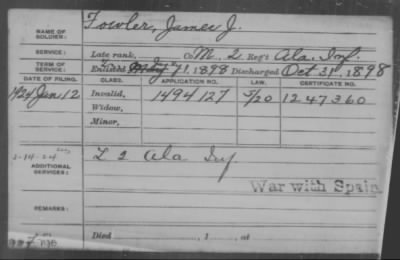 NAME OF SOLDIER: Fowler, James J.
SERVICE: Late rank, Co. M, 2 Reg't Ala. Inf.
TERM OF SERVICE: Enlisted 1, 1898 Discharged Oct 31, 1898
DATE OF FILING. CLASS. APPLICATION NO. LAW. CERTIFICATE NO.
1924 Jan 12 Invalid, 1494127 5/20 1247360
Widow,
Minor,
2-14-24 L 2 Ala Inf
ADDITIONAL SERVICES:
War with Spain
REMARKS:
Died , 1 , at